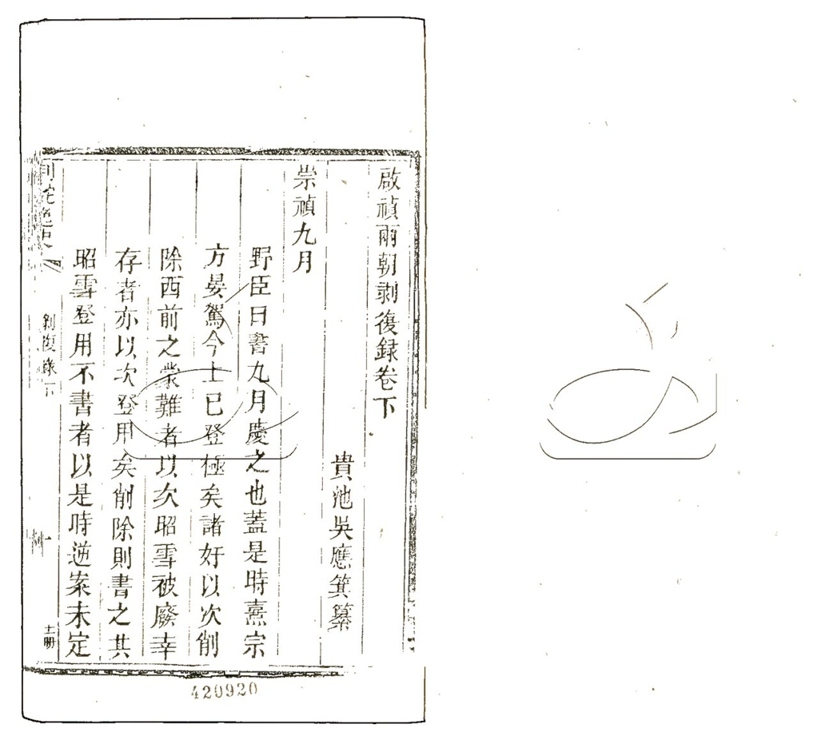 啟禎兩朝剥復録卷下
貴池吳應箕纂
崇禎九月
野臣曰書九月慶之也蓋是時熹宗
方晏駕今上已登極矣諸奸以次削
除西前之蒙難者以次昭雪被廢幸
存者亦以次登用矣削除則書之其
昭雪登用不書者以是時逆案未定
剝復錄下
十一
十二冊
420920